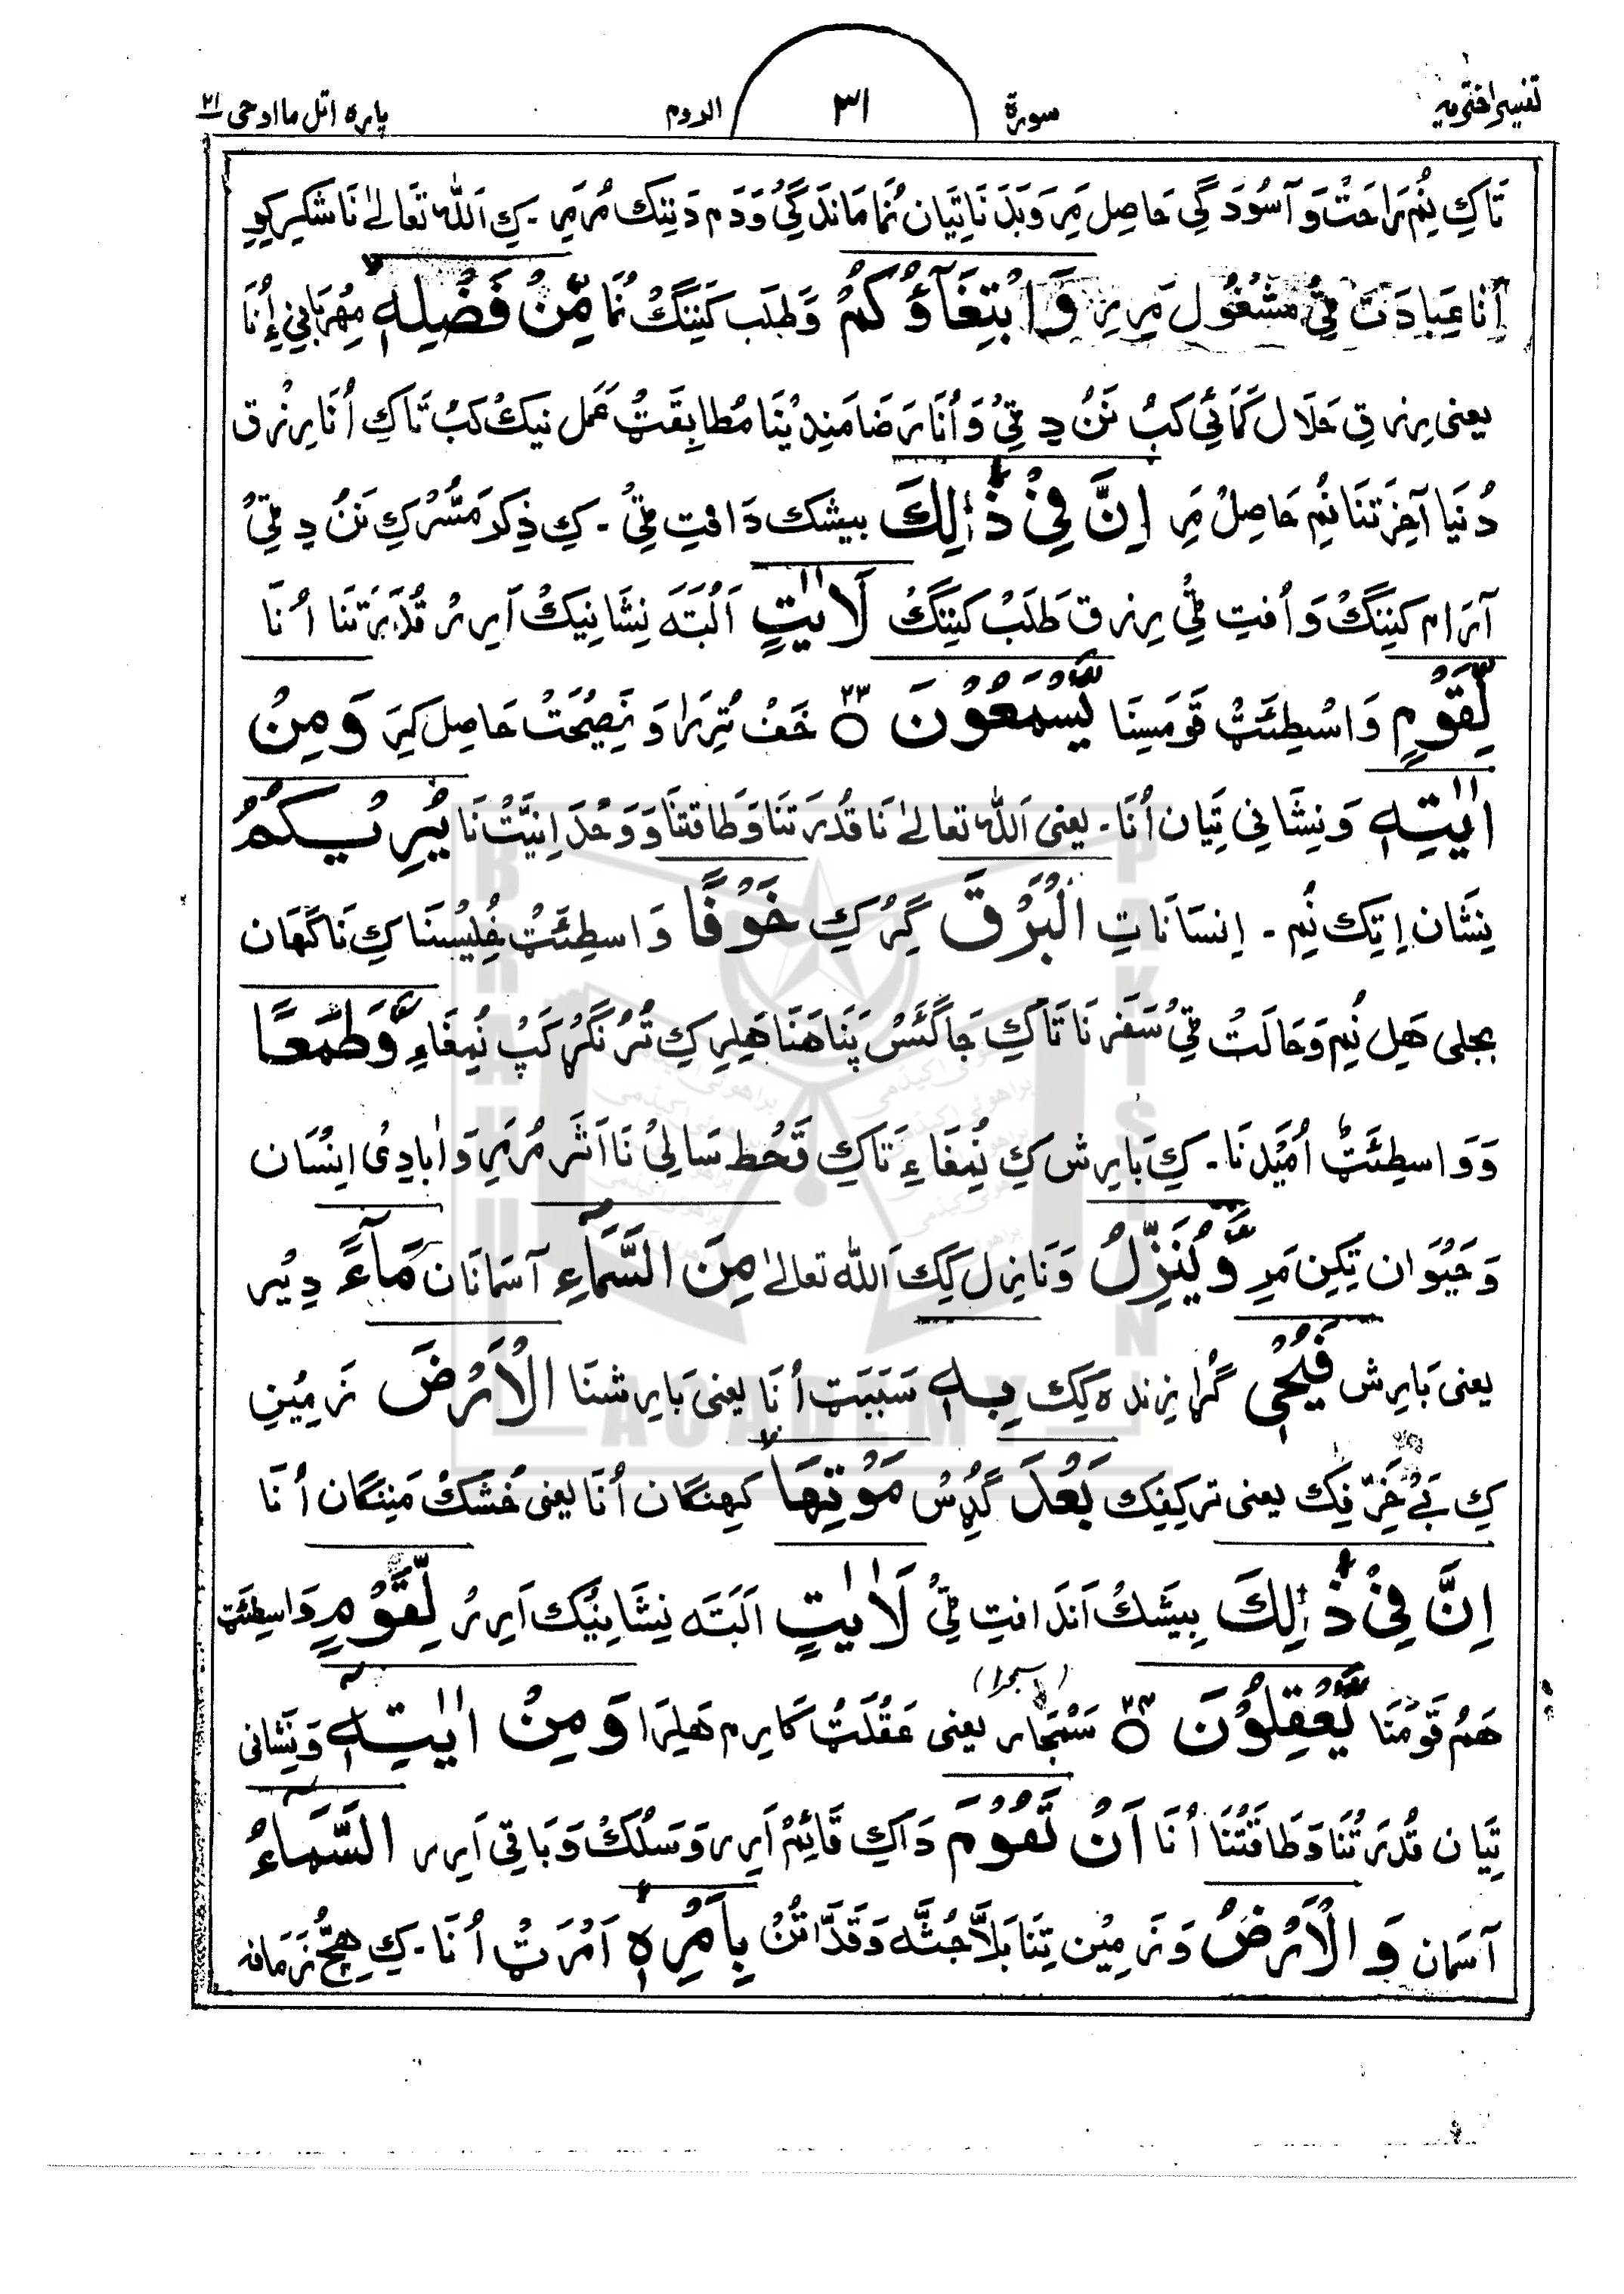 تفسیر اختریہ سورۃ ۳۱ الروم پارہ اتل ما اوحی ۲۱
تَاکِ نُم رَاحَتْ وَ آسُودَگِی حَاصِل مَرِ وَ بَدَنَا تِیَان نُمَا مَانْدَگِیْ وَ دَم دَتِنِک مُر مَرِ ۔ کِ اَللّٰہ تَعَالیٰ نَا شکر کیو
اُنَا عِبَادَت ٹِیْ مَشْغُول مَرِر وَابْتِغَآؤُكُمْ وَ طَلَب کَنِنْگ نُمَا مِّنْ فَضْلِهٖ مِہْربَانِی اُنَا
یعنی رِزقِ حَلَال کَمَائِی کَبْ نَنْ دِ ٹِیْ وَ اُنَا رَضَامَنْدِیْنَا مُطَابِقَتْ عَمَل نیک کَبْ تَاکِ اُنَا رِزْق
دُنْیَا آخِرَتنَا نُم حَاصِل مَرِ اِنَّ فِیْ ذٰلِكَ بیشک دَافتِ ٹِیْ ۔ کِ ذِکَر مَسُّرکِ نَنْ دِ ٹِیْ
آرَام کَنِنْگ وَ اُفتِ ٹِیْ رِزق طَلَبْ کَنِنْگ لَاٰیٰتٍ اَلْبَتَہ نِشَانِیک اَرِرْ قُدْرَتنَا اُنَا
لِّقَوْمٍ وَاسْطِئَتْ قَومَسِنَا یَّسْمَعُوْنَ ۲۳ خَفْ تُرِرَا وَ نَصِیْحَتْ حَاصِل کَرِ وَمِنْ
اٰیٰتِهٖ وَ نِشَانِی تِیَان اُنَا ۔ یعنی اَللّٰہ تعالیٰ نَا قُدرَتنَا وَ طَاقتنَا وَ وَحْدَانِیَّتْ نَا یُرِیْكُمُ
نِشَان اِتِک نُم ۔ اِنسَانَاتِ الْبَرْقَ گِرُکِ خَوْفًا وَاسطِئَتْ خُلِیْسنَا کِ نَاگَہَان
بجلی ھَلِ نُم وَ حَالَتْ ٹِیْ سَفَر نَا تَاکِ جَاگَئَسْ پَنَاھنَا ھَلِر کِ تُر نَگر کَپْ نُمغَاءِ وَّطَمَعًا
وَ وَاسطِئَتْ اُمَیْدنَا ۔ کِ بَارِش کِ نُمغَاءِ تَاکِ قَحْط سَالِیْ نَا اَثَر مُر مَرِ وَ اٰبادِی اِنْسَان
وَ حَیْوَان تِکِن مَرِ وَّیُنَزِّلُ وَ نَازِل کِک اَللّٰہ تعالیٰ مِنَ السَّمَآءِ آسمَانَان مَآءً دِیْر
یعنی بَارِش فَیُحْیٖ گُرا زِندہ کِک بِهِ سَبَبَت اُنَا یعنی بَارِشنَا الْاَرْضَ زَمِیْنِ
کِ بَے خَرِّ فِک یعنی تر کفِک بَعْدَ گُدِسْ مَوْتِهَا کہنگان اُنَا یعنی خُشکْ مَنِنْگان اُنَا
اِنَّ فِیْ ذٰلِكَ بِیشَکْ اَندَافتِ ٹِیْ لَاٰیٰتٍ اَلبَتَہ نِشَانِیْک اَرِرْ لِّقَوْمٍ وَاسطِئَتْ
ھَمُ قَوْمَنَا یَّعْقِلُوْنَ ۲۴ سَمْجَار یعنی عَقْلَتْ کَارِم ھَلِرَا وَمِنْ اٰیٰتِهٖ وَ نِشَانی
تِیَان قُدرَتْنَا وَ طَاقَتْنَا اُنَا اَنْ تَقُوْمَ دَاکِ قَائِمْ اَرِر وَ سَلُکْ وَ بَاقِی اَرِر السَّمَآءُ
آسمان وَ الْاَرْضُ وَ زَمِیْن تِنَا بَلَّا جُثَّہ وَ قَدَّاتُنْ بِاَمْرِهٖ اَمْرَتْ اُنَا ۔ کِ ھِچّ زَمَانہ
BRAHUI ACADEMY PAKISTAN